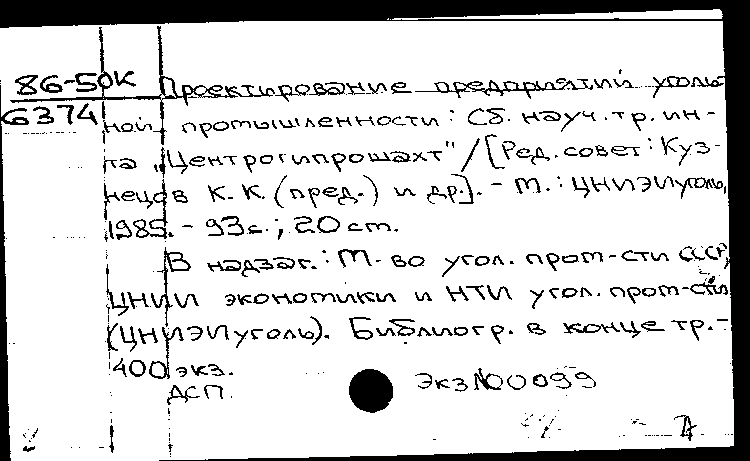 86-50к Проектирование предприятий уголь-
6374 ной промышленности: Сб. науч. тр. ин-
та „Центрогипрошахт" / [Ред. совет: Куз-
нецов К. К. (пред.) и др.]. - М.: ЦНИЭИуголь,
1985. - 93 с.; 20 см.
В надзаг.: М-во угол. пром-сти СССР,
ЦНИИ экономики и НТИ угол. пром-сти
(ЦНИЭИуголь). Библиогр. в конце тр. -
400 экз.
ДСП. Экз №00099